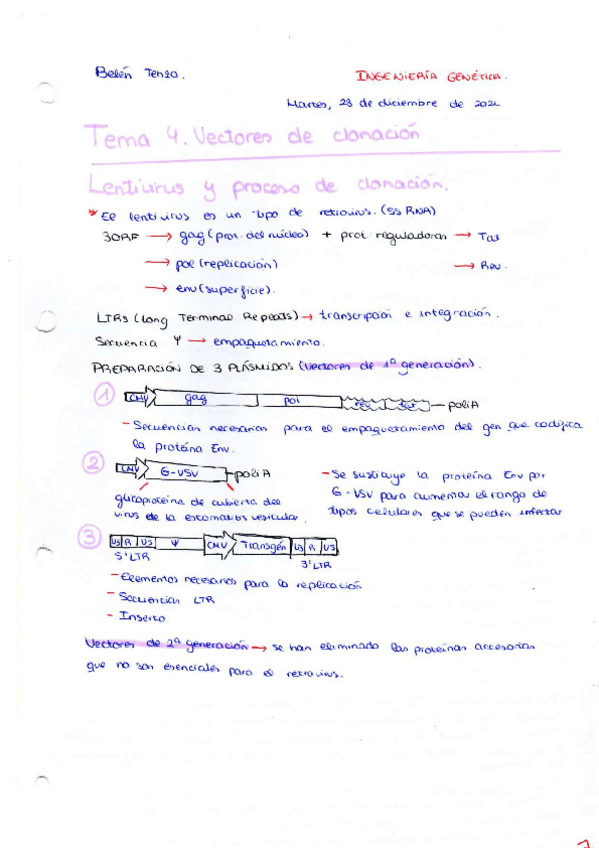 Belén Tenza.
INGENIERÍA GENÉTICA.
Martes, 28 de diciembre de 2021
Tema 4. Vectores de clonación
Lentivirus y proceso de clonación.
* El lentivirus es un tipo de retrovirus. (ssRNA)
3ORF → gag (prot. del núcleo) + prot reguladoras → Tat
→ pol (replicación) → Rev.
→ env (superficie).
LTRs (Long Terminal Repeats) → transcripción e integración.
Secuencia Ψ → empaquetamiento.
PREPARACIÓN DE 3 PLÁSMIDOS (Vectores de 1ª generación).
1 CMV gag pol rev tat poliA
- Secuencias necesarias para el empaquetamiento del gen que codifica
la proteína Env.
2 CMV G-VSV poliA
glicoproteína de cubierta del
virus de la estomatitis vesicular.
- Se sustituye la proteína Env por
G-VSV para aumentar el rango de
tipos celulares que se pueden infectar
3 U3 R U5 Ψ CMV Transgén U3 R U5
5' LTR 3' LTR
- Elementos necesarios para la replicación
- Secuencias LTR
- Inserto
Vectores de 2ª generación → se han eliminado las proteínas accesorias
que no son esenciales para el retrovirus.